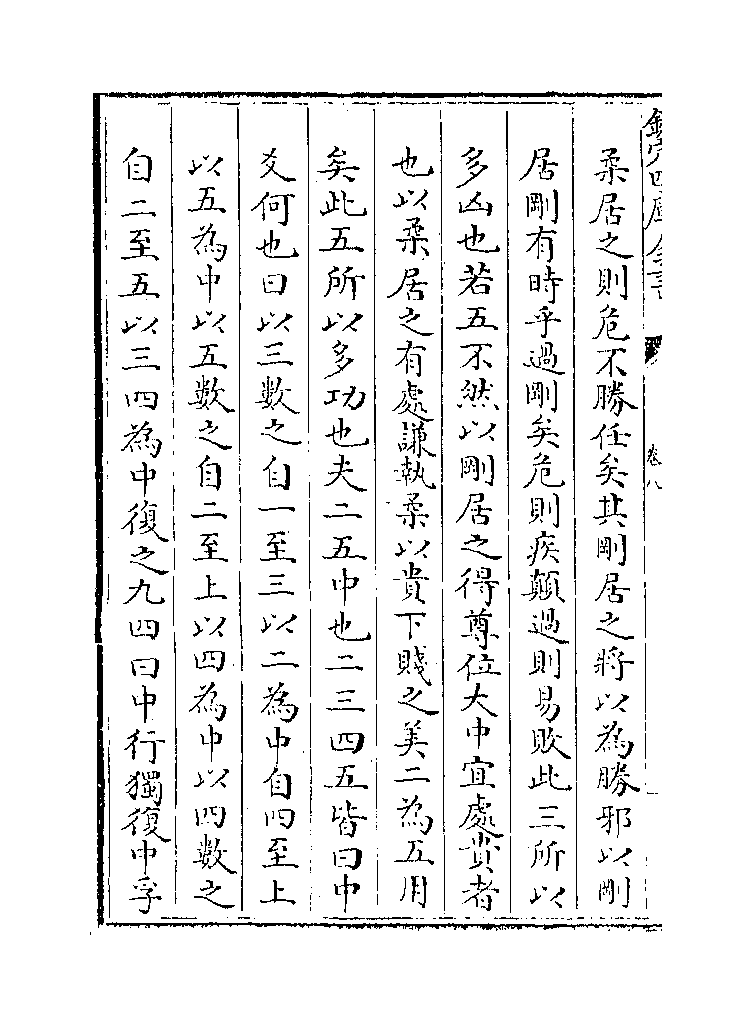 欽定四庫全書
卷八
柔居之則危不勝任矣其剛居之將以為勝邪以剛
居剛有時乎過剛矣危則疾顛過則易敗此三所以
多凶也若五不然以剛居之得尊位大中宜處貴者
也以柔居之有處謙執柔以貴下賤之美二為五用
矣此五所以多功也夫二五中也二三四五皆曰中
爻何也曰以三數之自一至三以二為中自四至上
以五為中以五數之自二至上以四為中以四數之
自二至五以三四為中復之九四曰中行獨復中孚